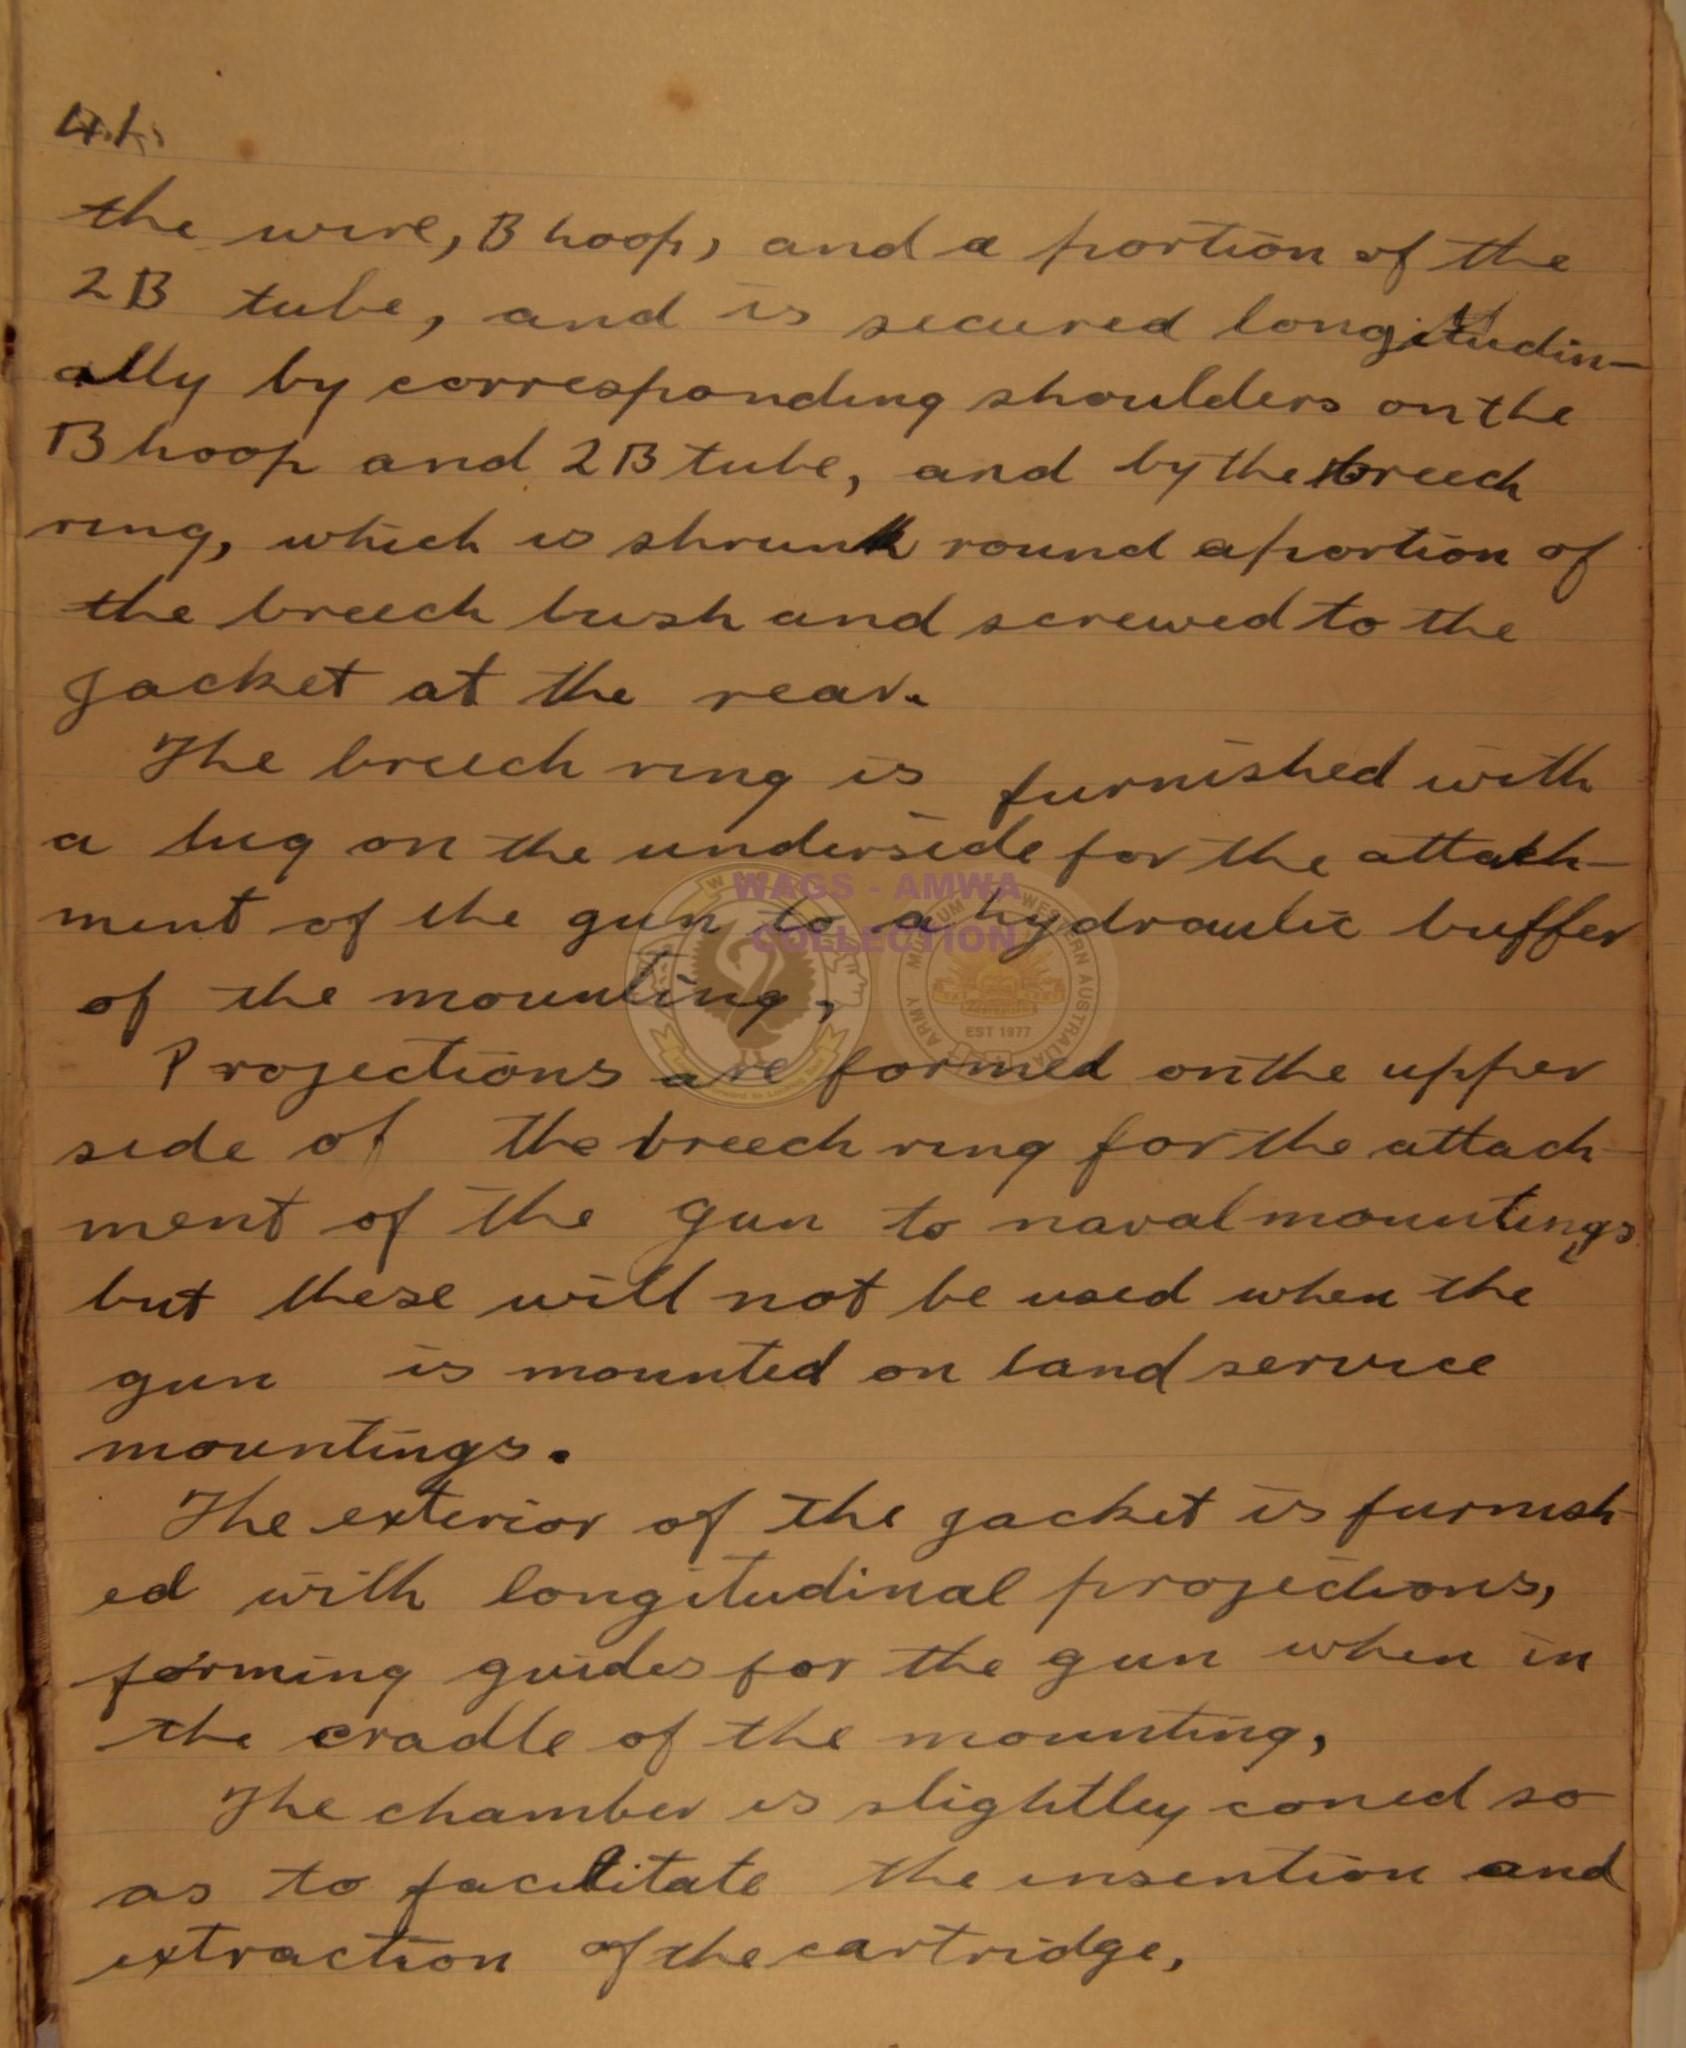 4.
the wire, B hoop, and a portion of the
2B tube, and is secured longitudin-
ally by corresponding shoulders on the
B hoop and 2B tube, and by the breech
ring, which is shrunk round a portion of
the breech bush and screwed to the
jacket at the rear.
The breech ring is furnished with
a lug on the underside for the attach-
ment of the gun to a hydraulic buffer
of the mounting,
Projections are formed on the upper
side of the breech ring for the attach-
ment of the gun to naval mountings
but these will not be used when the
gun is mounted on land service
mountings.
The exterior of the jacket is furnish-
ed with longitudinal projections,
forming guides for the gun when in
the cradle of the mounting,
The chamber is slightley coned so
as to facilitate the insention and
extraction of the cartridge,
WAGS - AMWA
COLLECTION
ARMY MUSEUM WESTERN AUSTRALIA
EST 1977